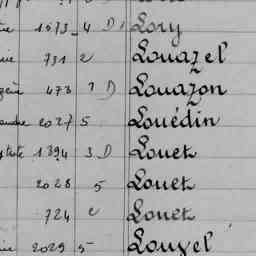 1573 4 D Lory
731 2 Louazel
478 1 D Louazon
2027 5 Louédin
1394 3 D Louet
2028 5 Louet
724 2 Louet
2029 5 Louvel